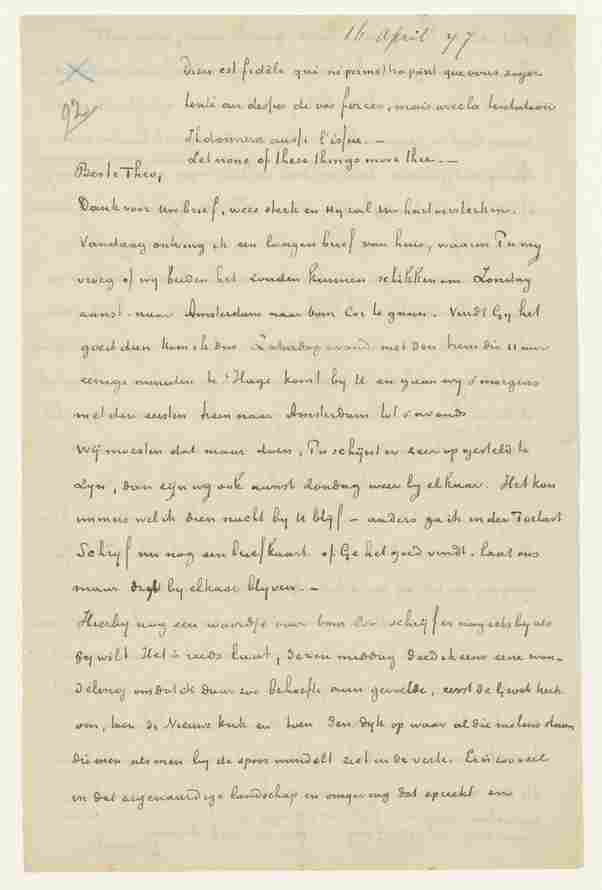 16 April 77
92
Dieu est fidèle qui ne permettra point que vous soyez
tenté au dessus de vos forces, mais avec la tentation
Il donnera aussi l'issue. —
Let none of these things move thee. —
Beste Theo,
Dank voor Uw brief, wees sterk en Hij zal Uw hart versterken.
Vandaag ontving ik een langen brief van huis, waarin Pa mij
vroeg of wij beiden het zouden kunnen schikken om Zondag
aanst. naar Amsterdam naar oom Cor te gaan. Vindt Gij het
goed dan kom ik dus Zaturdag avond met den trein die 11 uur
eenige minuten te 's Hage komt bij U en gaan wij 's morgens
met den eersten trein naar Amsterdam tot 's avonds
Wij moesten dat maar doen, Pa schijnt er zeer op gesteld te
zijn, dan zijn wij ook aanst Zondag weer bij elkaar. Het kan
immers wel ik dien nacht bij U blijf – anders ga ik in den Toelast
Schrijf nu nog een briefkaart of Ge het goed vindt. laat ons
maar digt bij elkaar blijven. —
Hierbij nog een woordje voor oom Cor schrijf er nog iets bij als
Gij wilt Het is reeds laat, dezen middag deed ik eens eene wan-
deling omdat ik daar zoo behoefte aan gevoelde, eerst de Groote kerk
om, toen de Nieuwe kerk en toen den dijk op waar al die molens staan
die men als men bij de spoor wandelt ziet in de verte. Er is zooveel
in dat eigenaardige landschap en omgeving dat spreekt en